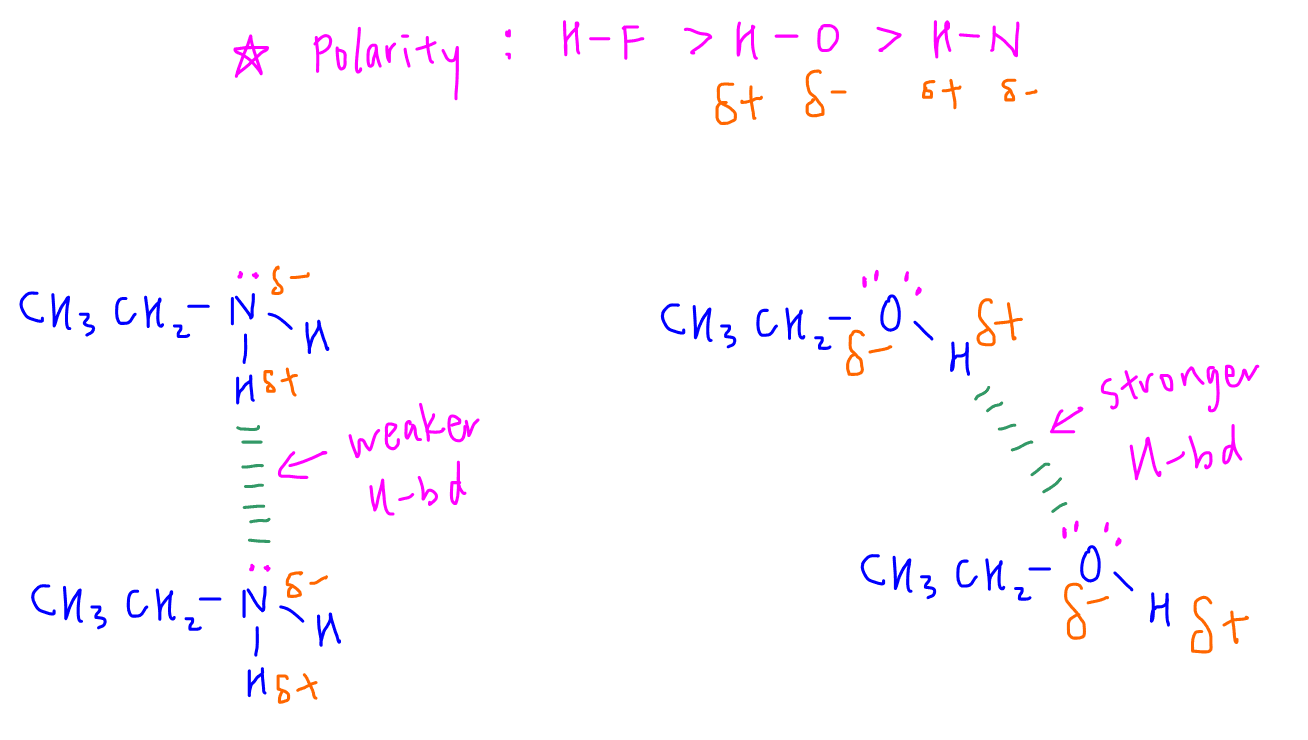 ☆ Polarity : H-F > H-O > H-N
δ+ δ- δ+ δ-
CH₃ CH₂-N̈ δ-
H
H δ+
weaker
H-bd
CH₃ CH₂-N̈ δ-
H
H δ+
CH₃ CH₂-O
δ- H δ+
stronger
H-bd
CH₃ CH₂-O
δ- H δ+